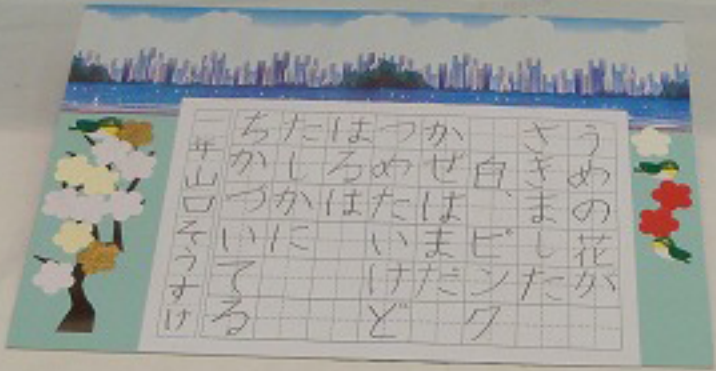 うめの花が
さきました
白、ピンク
かぜはまだ
つめたいけど
はるは
たしかに
ちかづいてる
一年山口そうすけ